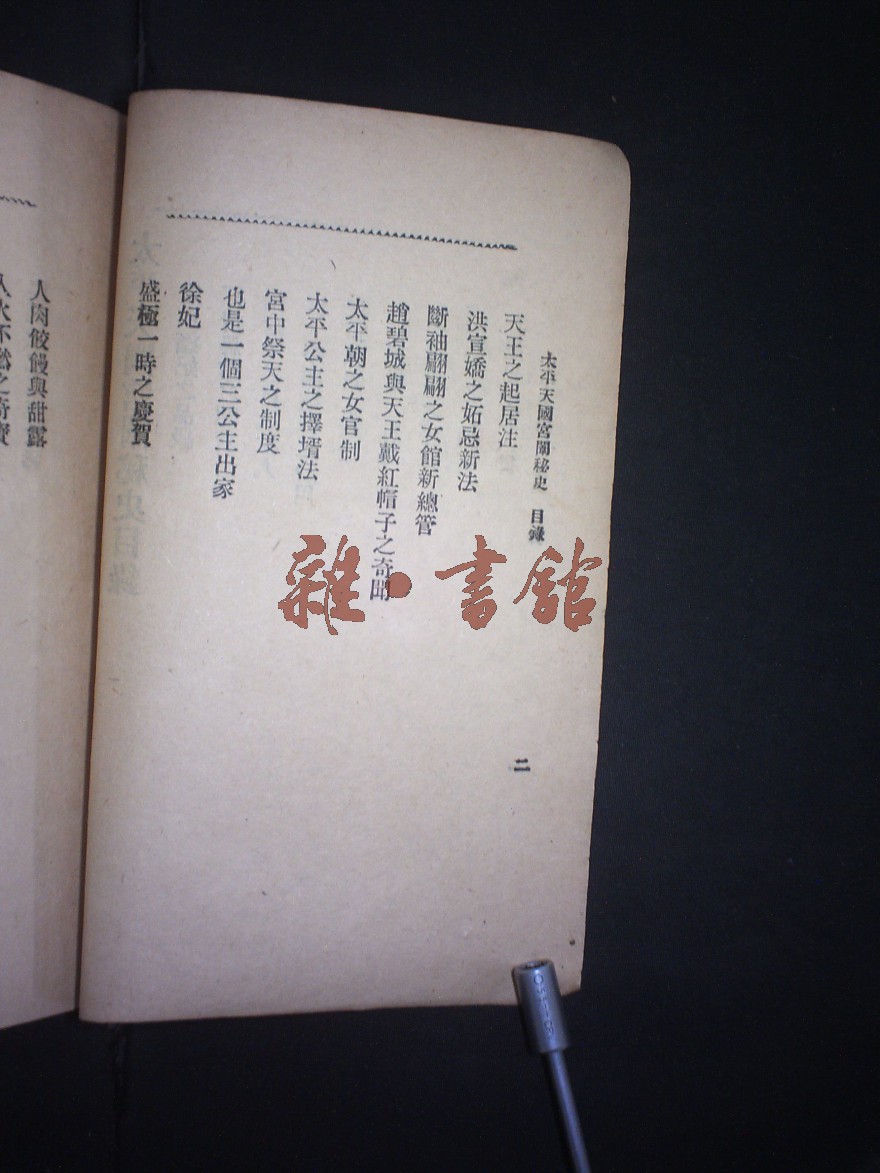 太平天國宮闈秘史　目錄
二
天王之起居注
洪宣嬌之妬忌新法
斷袖翩翩之女館新總管
趙碧城與天王戴紅帽子之奇聞
太平朝之女官制
太平公主之擇壻法
宮中祭天之制度
也是一個三公主出家
徐妃
盛極一時之慶賀
人肉餃饅與甜露
雜·書館